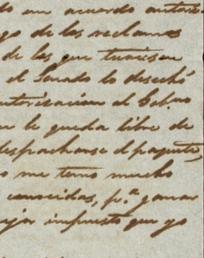 to un acuerdo autori
go de los reclamos
de las que tuviesen
el Senado lo desechó
utorizacion el Gobno
n le queda libre de
despacharse el paquete,
o me temo mucho
conocidas, p.ª ganar
ejor impuesto que yo